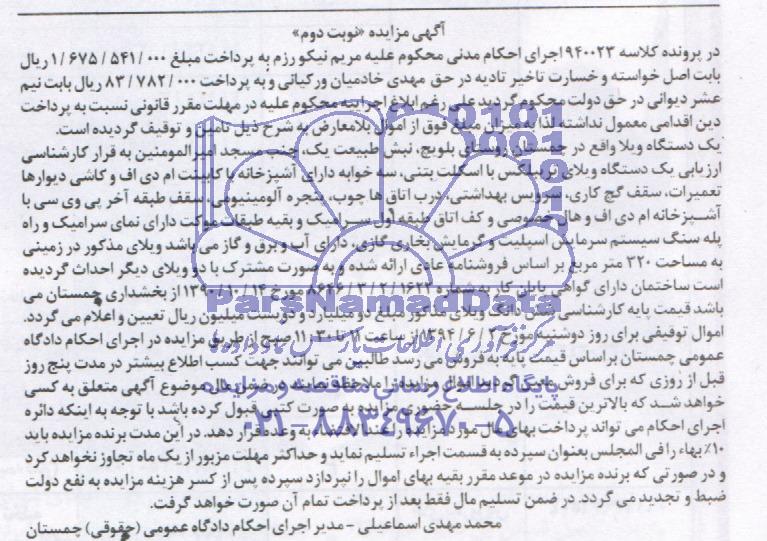 آگهی مزایده «نوبت دوم»
در پرونده کلاسه ۹۴۰۰۲۳ اجرای احکام مدنی محکوم علیه مریم نیکو رزم به پرداخت مبلغ ۱/۶۷۵/۵۴۱/۰۰۰ ریال
بابت اصل خواسته و خسارت تاخیر تادیه در حق مهدی خادمیان ورکیانی و به پرداخت ۸۳/۷۸۲/۰۰۰ ریال بابت نیم
عشر دیوانی در حق دولت محکوم گردید علی رغم ابلاغ اجراییه محکوم علیه در مهلت مقرر قانونی نسبت به پرداخت
دین اقدامی معمول نداشته لذا به میزان مبلغ فوق از اموال بلامعارض به شرح ذیل تامین و توقیف گردیده است.
یک دستگاه ویلا واقع در چمستان روستای بلویج، نبش طبیعت یک، جنب مسجد امیرالمومنین به قرار کارشناسی
ارزیابی یک دستگاه ویلای تریپلکس با اسکلت بتنی، سه خوابه دارای آشپزخانه با کابینت ام دی اف و کاشی دیوارها
تعمیرات، سقف گچ کاری، سرویس بهداشتی، درب اتاق ها چوب، پنجره آلومینیومی، سقف طبقه آخر پی وی سی با
آشپزخانه ام دی اف و هال خصوصی و کف اتاق طبقه اول سرامیک و بقیه طبقات موکت دارای نمای سرامیک و راه
پله سنگ سیستم سرمایش اسپلیت و گرمایش بخاری گازی، دارای آب و برق و گاز می باشد ویلای مذکور در زمینی
به مساحت ۳۲۰ متر مربع بر اساس فروشنامه عادی ارائه شده و به صورت مشترک با دو ویلای دیگر احداث گردیده
است ساختمان دارای گواهی پایان کار به شماره ۸۶۴۶/۳/۲/۱۶۲۲ مورخ ۱۳۹۰/۱۰/۱۴ از بخشداری چمستان می
باشد قیمت پایه کارشناسی ششدانگ ویلای مذکور مبلغ دو میلیارد و دویست میلیون ریال تعیین و اعلام می گردد.
اموال توقیفی برای روز دوشنبه مورخ ۱۳۹۴/۶/۲ از ساعت ۱۱ تا ۱۱:۳۰ صبح از طریق مزایده در اجرای احکام دادگاه
عمومی چمستان براساس قیمت پایه به فروش می رسد طالبین می توانند جهت کسب اطلاع بیشتر در مدت پنج روز
قبل از روزی که برای فروش معین گردید اموال مزایده را ملاحظه نمایند در ضمن مال موضوع آگهی متعلق به کسی
خواهد شد که بالاترین قیمت را در جلسه حضوری مزایده به صورت کتبی قبول کرده باشد با توجه به اینکه دائره
اجرای احکام می تواند پرداخت بهای مال مورد مزایده را عندالاقتضاء به وعده قرار دهد. در این مدت برنده مزایده باید
۱۰٪ بهاء را فی المجلس بعنوان سپرده به قسمت اجراء تسلیم نماید و حداکثر مهلت مزبور از یک ماه تجاوز نخواهد کرد
و در صورتی که برنده مزایده در موعد مقرر بقیه بهای اموال را نپردازد سپرده پس از کسر هزینه مزایده به نفع دولت
ضبط و تجدید می گردد. در ضمن تسلیم مال فقط بعد از پرداخت تمام آن صورت خواهد گرفت.
محمد مهدی اسماعیلی - مدیر اجرای احکام دادگاه عمومی (حقوقی) چمستان
ParsNamadData
مرکز فرآوری اطلاعات پارس نماد داده ها
پایگاه اطلاع رسانی مناقصه و مزایده
۰۲۱-۸۸۳۴۹۶۷۰-۵